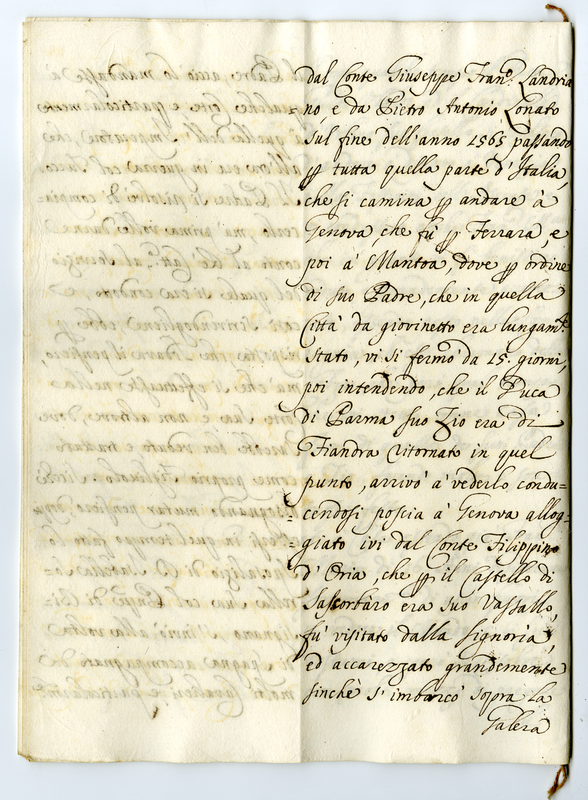 dal Conte Giuseppe Fran.º Landria
no, e da Pietro Antonio Lonato
sul fine dell'anno 1565 passando
ꝑ tutta quella parte d'Italia,
che si camina ꝑ andare à
Genova, che fù ꝑ Ferrara, e
poi à Mantoa, dove ꝑ ordine
di suo Padre, che in quella
Città da giovinetto era lungam.te
stato, vi si fermò da 15. giorni,
poi intendendo, che il Duca
di Parma suo Zio era di
Fiandra ritornato in quel
punto, arrivò à vederlo condu=
cendosi poscia à Genova allog=
giato ivi dal Conte Filippino
d'Oria, che ꝑ il Castello di
Sascorbaro era suo Vassallo,
fù visitato dalla Signoria,
ed accarezzato grandemente
sinchè s'imbarcò sopra la
Galera